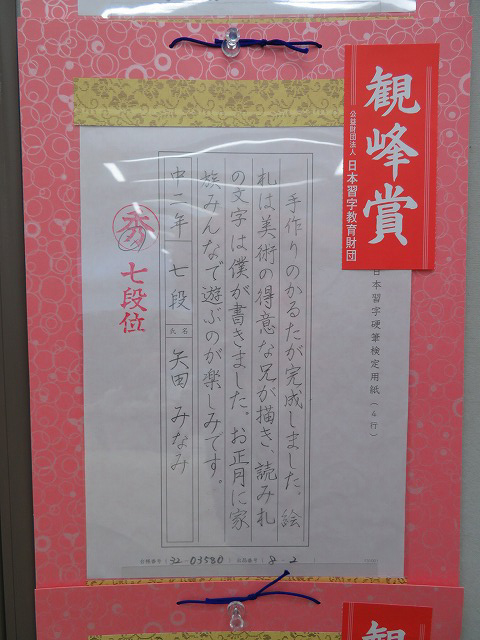 観峰賞
公益財団法人 日本習字教育財団
日本習字硬筆検定用紙(4行)
手作りのかるたが完成しました。絵
札は美術の得意な兄が描き、読み札
の文字は僕が書きました。お正月に家
族みんなで遊ぶのが楽しみです。
中二年 七段 氏名 矢田 みなみ
秀
七段位
32-03580
8-2
観